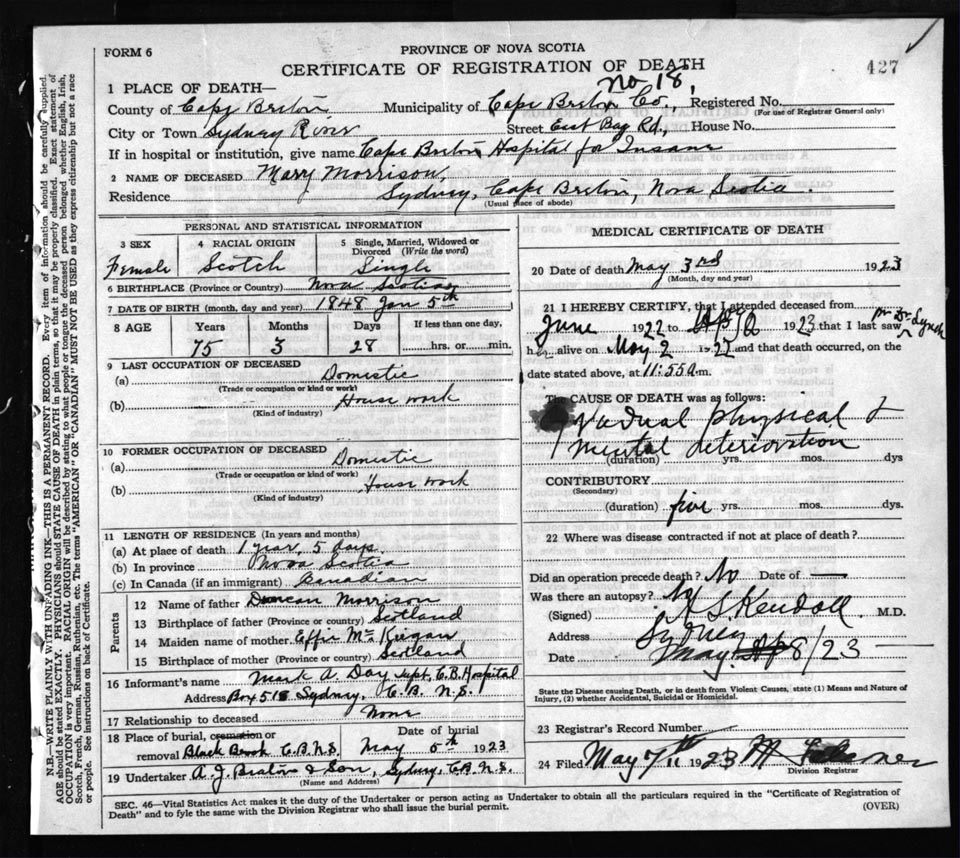 FORM 6
PROVINCE OF NOVA SCOTIA
CERTIFICATE OF REGISTRATION OF DEATH
427
No 18,
1 PLACE OF DEATH—
County of Cape Breton Municipality of Cape Breton Co., Registered No.
(For use of Registrar General only)
City or Town Sydney River Street East Bay Rd., House No.
If in hospital or institution, give name Cape Breton Hospital for Insane
2 NAME OF DECEASED Mary Morrison,
Residence Sydney, Cape Breton, Nova Scotia.
(Usual place of abode)
PERSONAL AND STATISTICAL INFORMATION
3 SEX 4 RACIAL ORIGIN 5 Single, Married, Widowed or Divorced (Write the word)
Female Scotch Single
6 BIRTHPLACE (Province or Country) Nova Scotia
7 DATE OF BIRTH (month, day and year) 1848 Jan 5th
8 AGE Years Months Days If less than one day,
75 3 28 hrs. or min.
9 LAST OCCUPATION OF DECEASED
(a) Domestic
(Trade or occupation or kind of work)
(b) House work
(Kind of industry)
10 FORMER OCCUPATION OF DECEASED
(a) Domestic
(Trade or occupation or kind of work)
(b) House work
(Kind of industry)
11 LENGTH OF RESIDENCE (In years and months)
(a) At place of death 1 year, 5 days.
(b) In province Nova Scotia
(c) In Canada (if an immigrant) Canadian
Parents
12 Name of father Duncan Morrison
13 Birthplace of father (Province or country) Scotland
14 Maiden name of mother Effie Mc Keigan
15 Birthplace of mother (Province or country) Scotland
16 Informant's name Mark A. Day Supt. C.B. Hospital
Address Box 515 Sydney, C.B. N.S.
17 Relationship to deceased None
18 Place of burial, cremation or removal Black Brook C.B.N.S. Date of burial May 5th 1923
19 Undertaker A. J. Beaton & Son, Sydney, C.B. N.S.
(Name and Address)
MEDICAL CERTIFICATE OF DEATH
20 Date of death May 3rd 1923
(Month, day and year)
21 I HEREBY CERTIFY, that I attended deceased from
June 1922 to 1923 that I last saw
Dr. Lynch
h alive on May 2 1923 and that death occurred, on the
date stated above, at 11:55 a.m.
The CAUSE OF DEATH was as follows:
Gradual physical &
mental deterioration
(duration) yrs. mos. dys
CONTRIBUTORY
(Secondary)
(duration) five yrs. mos. dys.
22 Where was disease contracted if not at place of death?
Did an operation precede death? No Date of —
Was there an autopsy? No
(Signed) H S Kendall M.D.
Address Sydney
Date May 8/23
State the Disease causing Death, or in death from Violent Causes, state (1) Means and Nature of
Injury, (2) whether Accidental, Suicidal or Homicidal.
23 Registrar's Record Number
24 Filed May 7th 1923
Division Registrar
SEC. 46—Vital Statistics Act makes it the duty of the Undertaker or person acting as Undertaker to obtain all the particulars required in the "Certificate of Registration of
Death" and to fyle the same with the Division Registrar who shall issue the burial permit.
(OVER)
N.B.—WRITE PLAINLY WITH UNFADING INK—THIS IS A PERMANENT RECORD. Every item of information should be carefully supplied.
AGE should be stated EXACTLY. PHYSICIANS should STATE CAUSE OF DEATH in plain terms, so that it may be properly classified. Exact statement of
OCCUPATION is very important. RACIAL ORIGIN will be described by stating to what people or tongue the deceased person belonged whether English, Irish,
Scotch, French, German, Russian, Ruthenian, etc. The terms "AMERICAN" or "CANADIAN" MUST NOT BE USED as they express citizenship but not a race
or people. See instructions on back of Certificate.